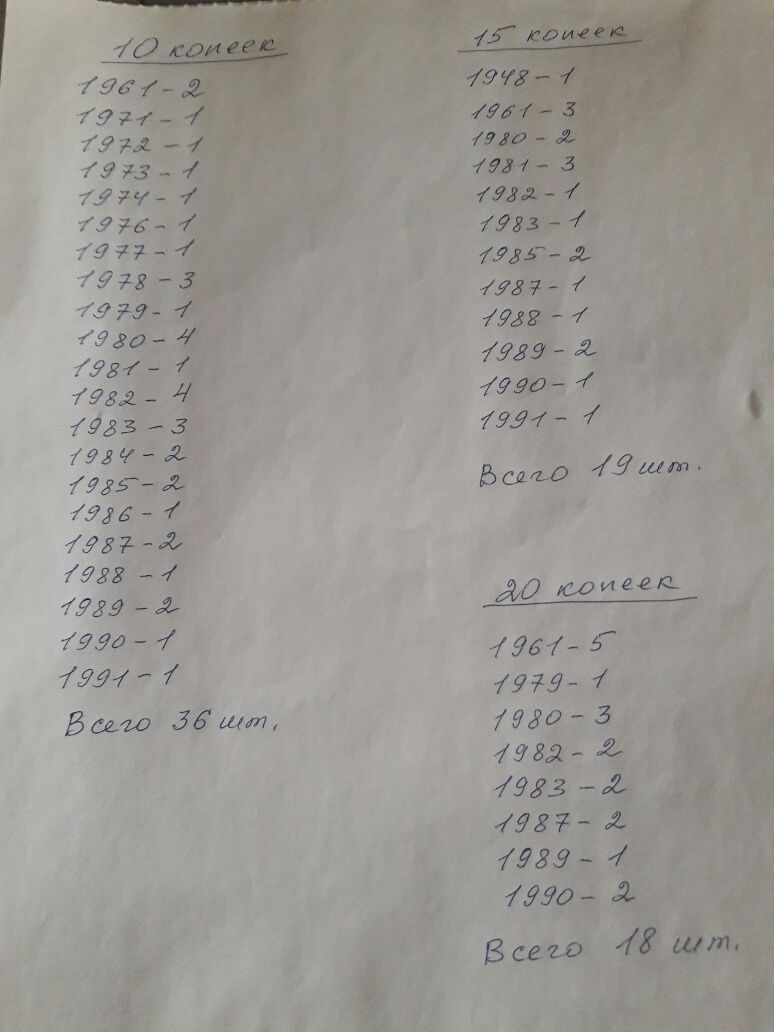 10 копеек
1961-2
1971-1
1972-1
1973-1
1974-1
1976-1
1977-1
1978-3
1979-1
1980-4
1981-1
1982-4
1983-3
1984-2
1985-2
1986-1
1987-2
1988-1
1989-2
1990-1
1991-1
Всего 36 шт.
15 копеек
1948-1
1961-3
1980-2
1981-3
1982-1
1983-1
1985-2
1987-1
1988-1
1989-2
1990-1
1991-1
Всего 19 шт.
20 копеек
1961-5
1979-1
1980-3
1982-2
1983-2
1987-2
1989-1
1990-2
Всего 18 шт.